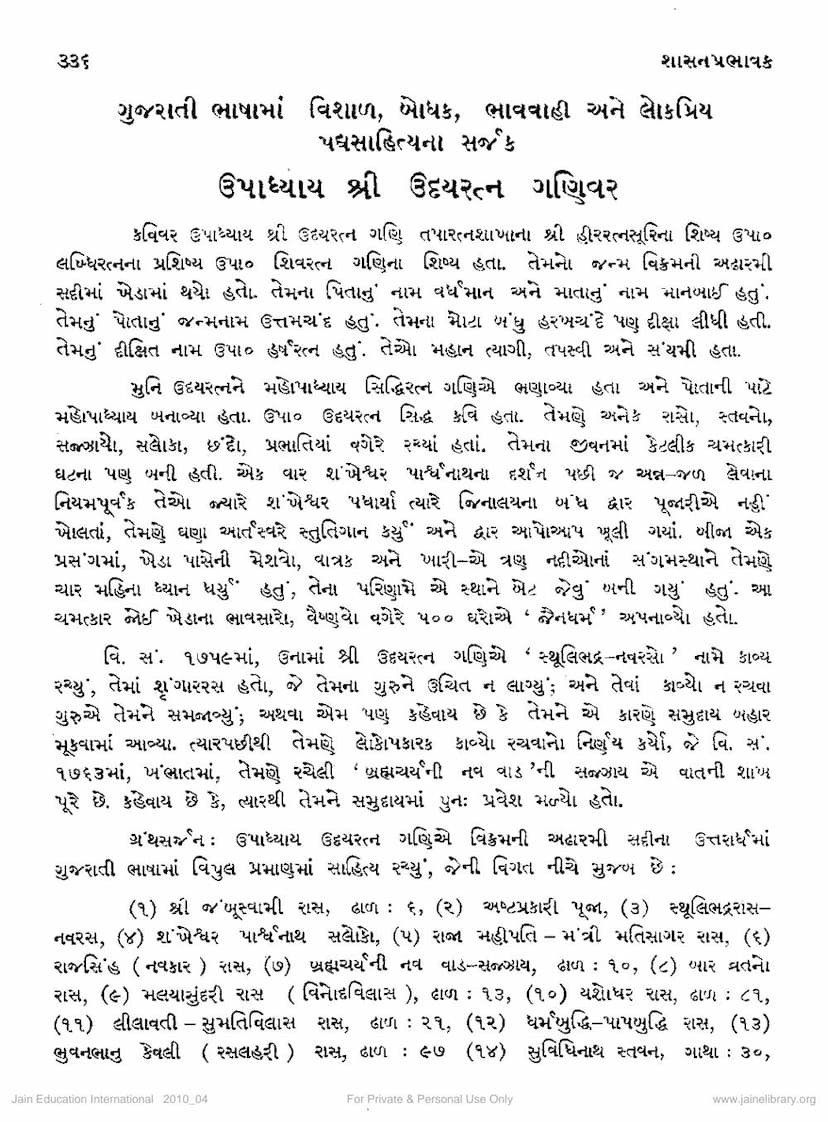 ૩૩૬ શાસનપ્રભાવક
ગુજરાતી ભાષામાં વિશાળ, બોધક, ભાવવાહી અને લોકપ્રિય
પદ્યસાહિત્યના સર્જક
ઉપાધ્યાય શ્રી ઉદયરત્ન ગણિવર
કવિવર ઉપાધ્યાય શ્રી ઉદયરત્ન ગણિ તપારત્નશાખાના શ્રી હીરરત્નસૂરિના શિષ્ય ઉપા૦
લબ્ધિરત્નના પ્રશિષ્ય ઉપા૦ શિવરત્ન ગણિના શિષ્ય હતા. તેમનો જન્મ વિક્રમની અઢારમી
સદીમાં ખેડામાં થયો હતો. તેમના પિતાનું નામ વર્ધમાન અને માતાનું નામ માનબાઈ હતું.
તેમનું પોતાનું જન્મનામ ઉત્તમચંદ હતું. તેમના મોટા બંધુ હરખચંદે પણ દીક્ષા લીધી હતી.
તેમનું દીક્ષિત નામ ઉપા૦ હર્ષરત્ન હતું. તેઓ મહાન ત્યાગી, તપસ્વી અને સંયમી હતા.
મુનિ ઉદયરત્નને મહોપાધ્યાય સિદ્ધિરત્ન ગણિએ ભણાવ્યા હતા અને પોતાની પાટે
મહોપાધ્યાય બનાવ્યા હતા. ઉપા૦ ઉદયરત્ન સિદ્ધ કવિ હતા. તેમણે અનેક રાસો, સ્તવનો,
સજ્ઝાયો, સલોકા, છંદો, પ્રભાતિયાં વગેરે રચ્યાં હતાં. તેમના જીવનમાં કેટલીક ચમત્કારી
ઘટના પણ બની હતી. એક વાર શંખેશ્વર પાર્શ્વનાથના દર્શન પછી જ અન્ન–જળ લેવાના
નિયમપૂર્વક તેઓ જ્યારે શંખેશ્વર પધાર્યા ત્યારે જિનાલયના બંધ દ્વાર પૂજારીએ નહીં
ખોલતાં, તેમણે ઘણા આર્તસ્વરે સ્તુતિગાન કર્યું અને દ્વાર આપોઆપ ખૂલી ગયાં. બીજા એક
પ્રસંગમાં, ખેડા પાસેની મેશવો, વાત્રક અને ખારી–એ ત્રણ નદીઓનાં સંગમસ્થાને તેમણે
ચાર મહિના ધ્યાન ધર્યું હતું, તેના પરિણામે એ સ્થાને બેટ જેવું બની ગયું હતું. આ
ચમત્કાર જોઈ ખેડાના ભાવસારો, વૈષ્ણવો વગેરે ૫૦૦ ઘરોએ ‘ જૈનધર્મ ’ અપનાવ્યો હતો.
વિ. સં. ૧૭૫૯માં, ઉનામાં શ્રી ઉદયરત્ન ગણિએ ‘ સ્થૂલિભદ્ર–નવરસો ’ નામે કાવ્ય
રચ્યું, તેમાં શૃંગારરસ હતો, જે તેમના ગુરુને ઉચિત ન લાગ્યું; અને તેવાં કાવ્યો ન રચવા
ગુરુએ તેમને સમજાવ્યું; અથવા એમ પણ કહેવાય છે કે તેમને એ કારણે સમુદાય બહાર
મૂકવામાં આવ્યા. ત્યારપછીથી તેમણે લોકોપકારક કાવ્યો રચવાનો નિર્ણય કર્યો, જે વિ. સં.
૧૭૬૩માં, ખંભાતમાં, તેમણે રચેલી ‘ બ્રહ્મચર્યની નવ વાડ ’ની સજ્ઝાય એ વાતની શાખ
પૂરે છે. કહેવાય છે કે, ત્યારથી તેમને સમુદાયમાં પુનઃ પ્રવેશ મળ્યો હતો.
ગ્રંથસર્જન : ઉપાધ્યાય ઉદયરત્ન ગણિએ વિક્રમની અઢારમી સદીના ઉત્તરાર્ધમાં
ગુજરાતી ભાષામાં વિપુલ પ્રમાણમાં સાહિત્ય રચ્યું, જેની વિગત નીચે મુજબ છે :
(૧) શ્રી જંબૂસ્વામી રાસ, ઢાળ : ૬, (૨) અષ્ટપ્રકારી પૂજા, (૩) સ્થૂલિભદ્રરાસ–
નવરસ, (૪) શંખેશ્વર પાર્શ્વનાથ સલોકો, (૫) રાજા મહીપતિ – મંત્રી મતિસાગર રાસ, (૬)
રાજસિંહ ( નવકાર ) રાસ, (૭) બ્રહ્મચર્યની નવ વાડ–સજ્ઝાય, ઢાળ : ૧૦, (૮) બાર વ્રતનો
રાસ, (૯) મલયાસુંદરી રાસ ( વિનોદવિલાસ ), ઢાળ : ૧૩, (૧૦) યશોધર રાસ, ઢાળ : ૮૧,
(૧૧) લીલાવતી – સુમતિવિલાસ રાસ, ઢાળ : ૨૧, (૧૨) ધર્મબુદ્ધિ–પાપબુદ્ધિ રાસ, (૧૩)
ભુવનભાનુ કેવલી ( રસલહરી ) રાસ, ઢાળ : ૯૭ (૧૪) સુવિધિનાથ સ્તવન, ગાથા : ૩૦,
Jain Education International 2010_04 For Private & Personal Use Only www.jainelibrary.org